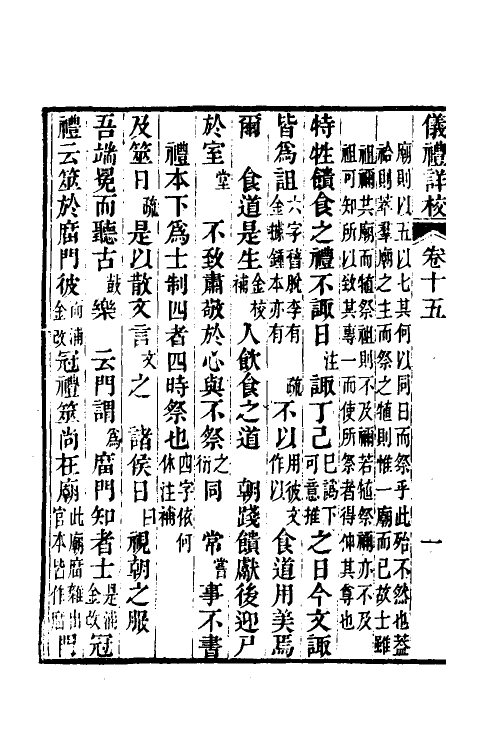 儀禮詳校 卷十五 一
廟則以五以七其何以同日而祭乎此殆不然也蓋
祫則萃羣廟之主而祭之犆則惟一廟而已故士雖
祖禰共廟而犆祭祖則不及禰若犆祭禰亦不及
祖可知所以致其專一而使所祭者得伸其尊也
特牲饋食之禮不諏日注諏丁己巳譌下可意推之日今文諏
皆爲詛六字舊脫李有金據鍾本亦有疏不以用彼文作以食道用美焉
爾 食道是生金校補人飲食之道 朝踐饋獻後迎尸
於室堂 不致肅敬於心與不祭之衍同 常嘗事不書
禮本下爲士制四者四時祭也四字依何休注補
及筮日疏是以散文言文之 諸侯日曰視朝之服
吾端冕而聽古鼓樂 云門謂爲廟門知者士是浦金改冠
禮云筮於廟門彼向浦金改冠禮筮尚在廟此廟廣雜出官本皆作廟門